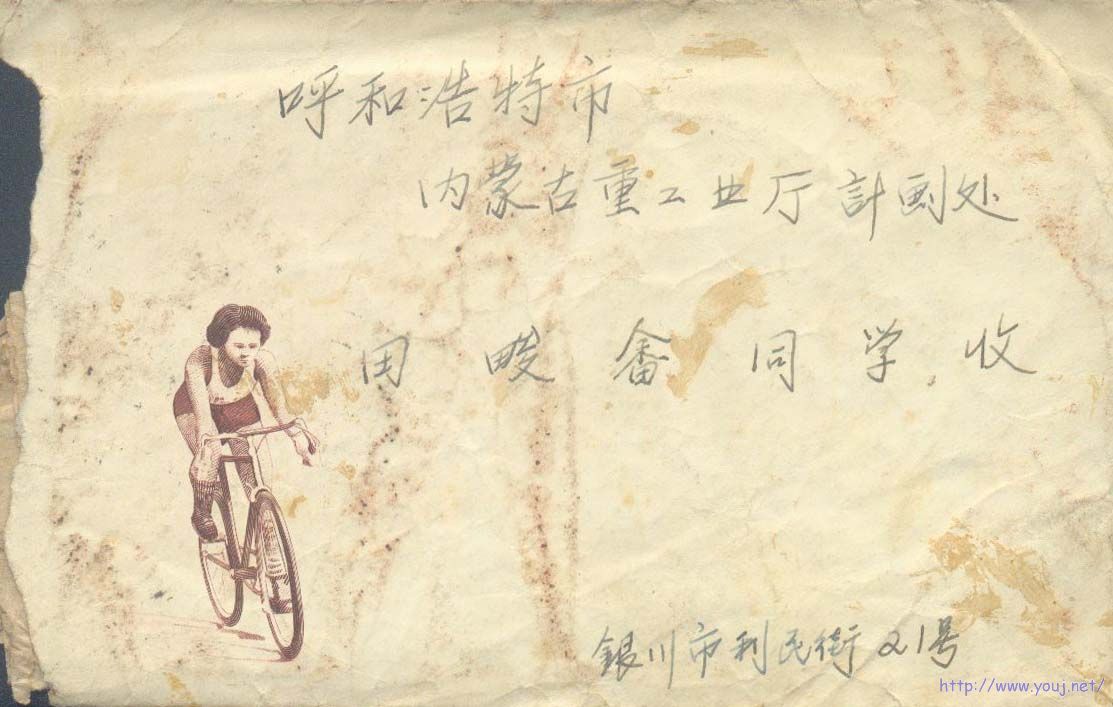 呼和浩特市
内蒙古重工业厅計劃处
田畯畬同学收
銀川市利民街21号
http://www.youj.net/